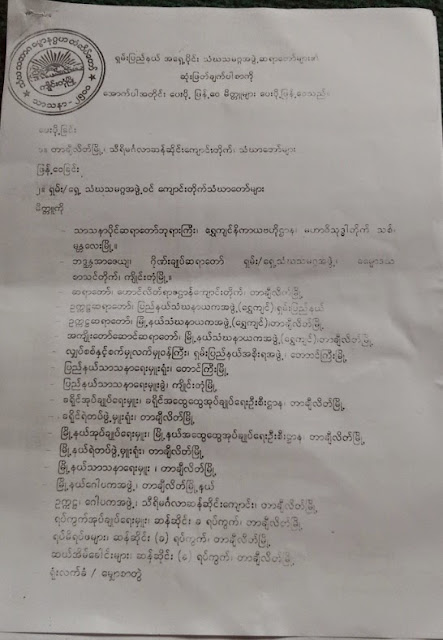 ရှမ်းပြည်နယ် အရှေ့ပိုင်း သံဃသမဂ္ဂအဖွဲ့ဆရာတော်များ၏
ဆုံးဖြတ်ချက်ပါစာကို
အောက်ပါအတိုင်း ပေးပို့ ဖြန့်ဝေ မိတ္တူများ ပေးပို့ဖြန့်ဝေသည်။
သာသနာ - ၂၅၀၀
ပေးပို့ခြင်း
၁။ တာချီလိတ်မြို့၊ သီရိမင်္ဂလာဆန်ဆိုင်းကျောင်းတိုက်၊ သံဃာတော်များ
ဖြန့်ဝေခြင်း
၂။ ရှမ်း/ရှေ့ သံဃသမဂ္ဂအဖွဲ့ဝင် ကျောင်းတိုက်သံဃာတော်များ
မိတ္တူကို
- သာသနာပိုင်ဆရာတော်ဘုရားကြီး၊ ရွှေကျင်နိကာယဗဟိုဌာန၊ မဟာဝိသုဒ္ဓါတိုက် သစ်၊
မန္တလေးမြို့။
- ဘဒ္ဒန္တအာစေယျ၊ ဂိုဏ်းချုပ်ဆရာတော် ရှမ်း/ရှေ့သံဃသမဂ္ဂအဖွဲ့၊ ဓမ္မောဒယ
စာသင်တိုက်၊ ကျိုင်းတုံမြို့။
- ဆရာတော်၊ ဟောင်လိတ်ရာဇဌာန်ကျောင်းတိုက်၊ တာချီလိတ်မြို့
- ဥက္ကဋ္ဌဆရာတော်၊ ပြည်နယ်သံဃနာယကအဖွဲ့(ရွှေကျင်)ရှမ်းပြည်နယ်
- ဥက္ကဋ္ဌဆရာတော်၊ မြို့နယ်သံဃနာယကအဖွဲ့(ရွှေကျင်)တာချီလိတ်မြို့
- အကျိုးတော်ဆောင်ဆရာတော်၊ မြို့နယ်သံဃနာယကအဖွဲ့(ရွှေကျင်)တာချီလိတ်မြို့
- လျှပ်စစ်နှင့်စက်မှုလက်မှုဝန်ကြီး၊ ရှမ်းပြည်နယ်အစိုးရအဖွဲ့၊ တောင်ကြီးမြို့
- ပြည်နယ်သာသနာရေးမှူးရုံး၊ တောင်ကြီးမြို့
- ပြည်နယ်သာသနာရေးမှူးခွဲ၊ ကျိုင်းတုံမြို့
- ခရိုင်အုပ်ချုပ်ရေးမှူး၊ ခရိုင်အထွေထွေအုပ်ချုပ်ရေးဦးစီးဌာန၊ တာချီလိတ်မြို့
- ခရိုင်ရဲတပ်ဖွဲ့မှူးရုံး၊ တာချီလိတ်မြို့
- မြို့နယ်အုပ်ချုပ်ရေးမှူး၊ မြို့နယ်အထွေထွေအုပ်ချုပ်ရေးဦးစီးဌာန၊ တာချီလိတ်မြို့
- မြို့နယ်ရဲတပ်ဖွဲ့မှူးရုံး၊ တာချီလိတ်မြို့
- မြို့နယ်သာသနာရေးမှူး ၊ တာချီလိတ်မြို့
- မြို့နယ်ဂေါပကအဖွဲ့၊ တာချီလိတ်မြို့နယ်
- ဥက္ကဋ္ဌ၊ ဂေါပကအဖွဲ့၊ သီရိမင်္ဂလာဆန်ဆိုင်းကျောင်း၊ တာချီလိတ်မြို့
- ရပ်ကွက်အုပ်ချုပ်ရေးမှူး၊ ဆန်ဆိုင်း ခ ရပ်ကွက်၊ တာချီလိတ်မြို့
- ရပ်မိရပ်ဖများ၊ ဆန်ဆိုင်း (ခ) ရပ်ကွက်၊ တာချီလိတ်မြို့
- ဆယ်အိမ်ခေါင်းများ၊ ဆန်ဆိုင်း (ခ) ရပ်ကွက်၊ တာချီလိတ်မြို့
- ရုံးလက်ခံ / မျှောစာတွဲ